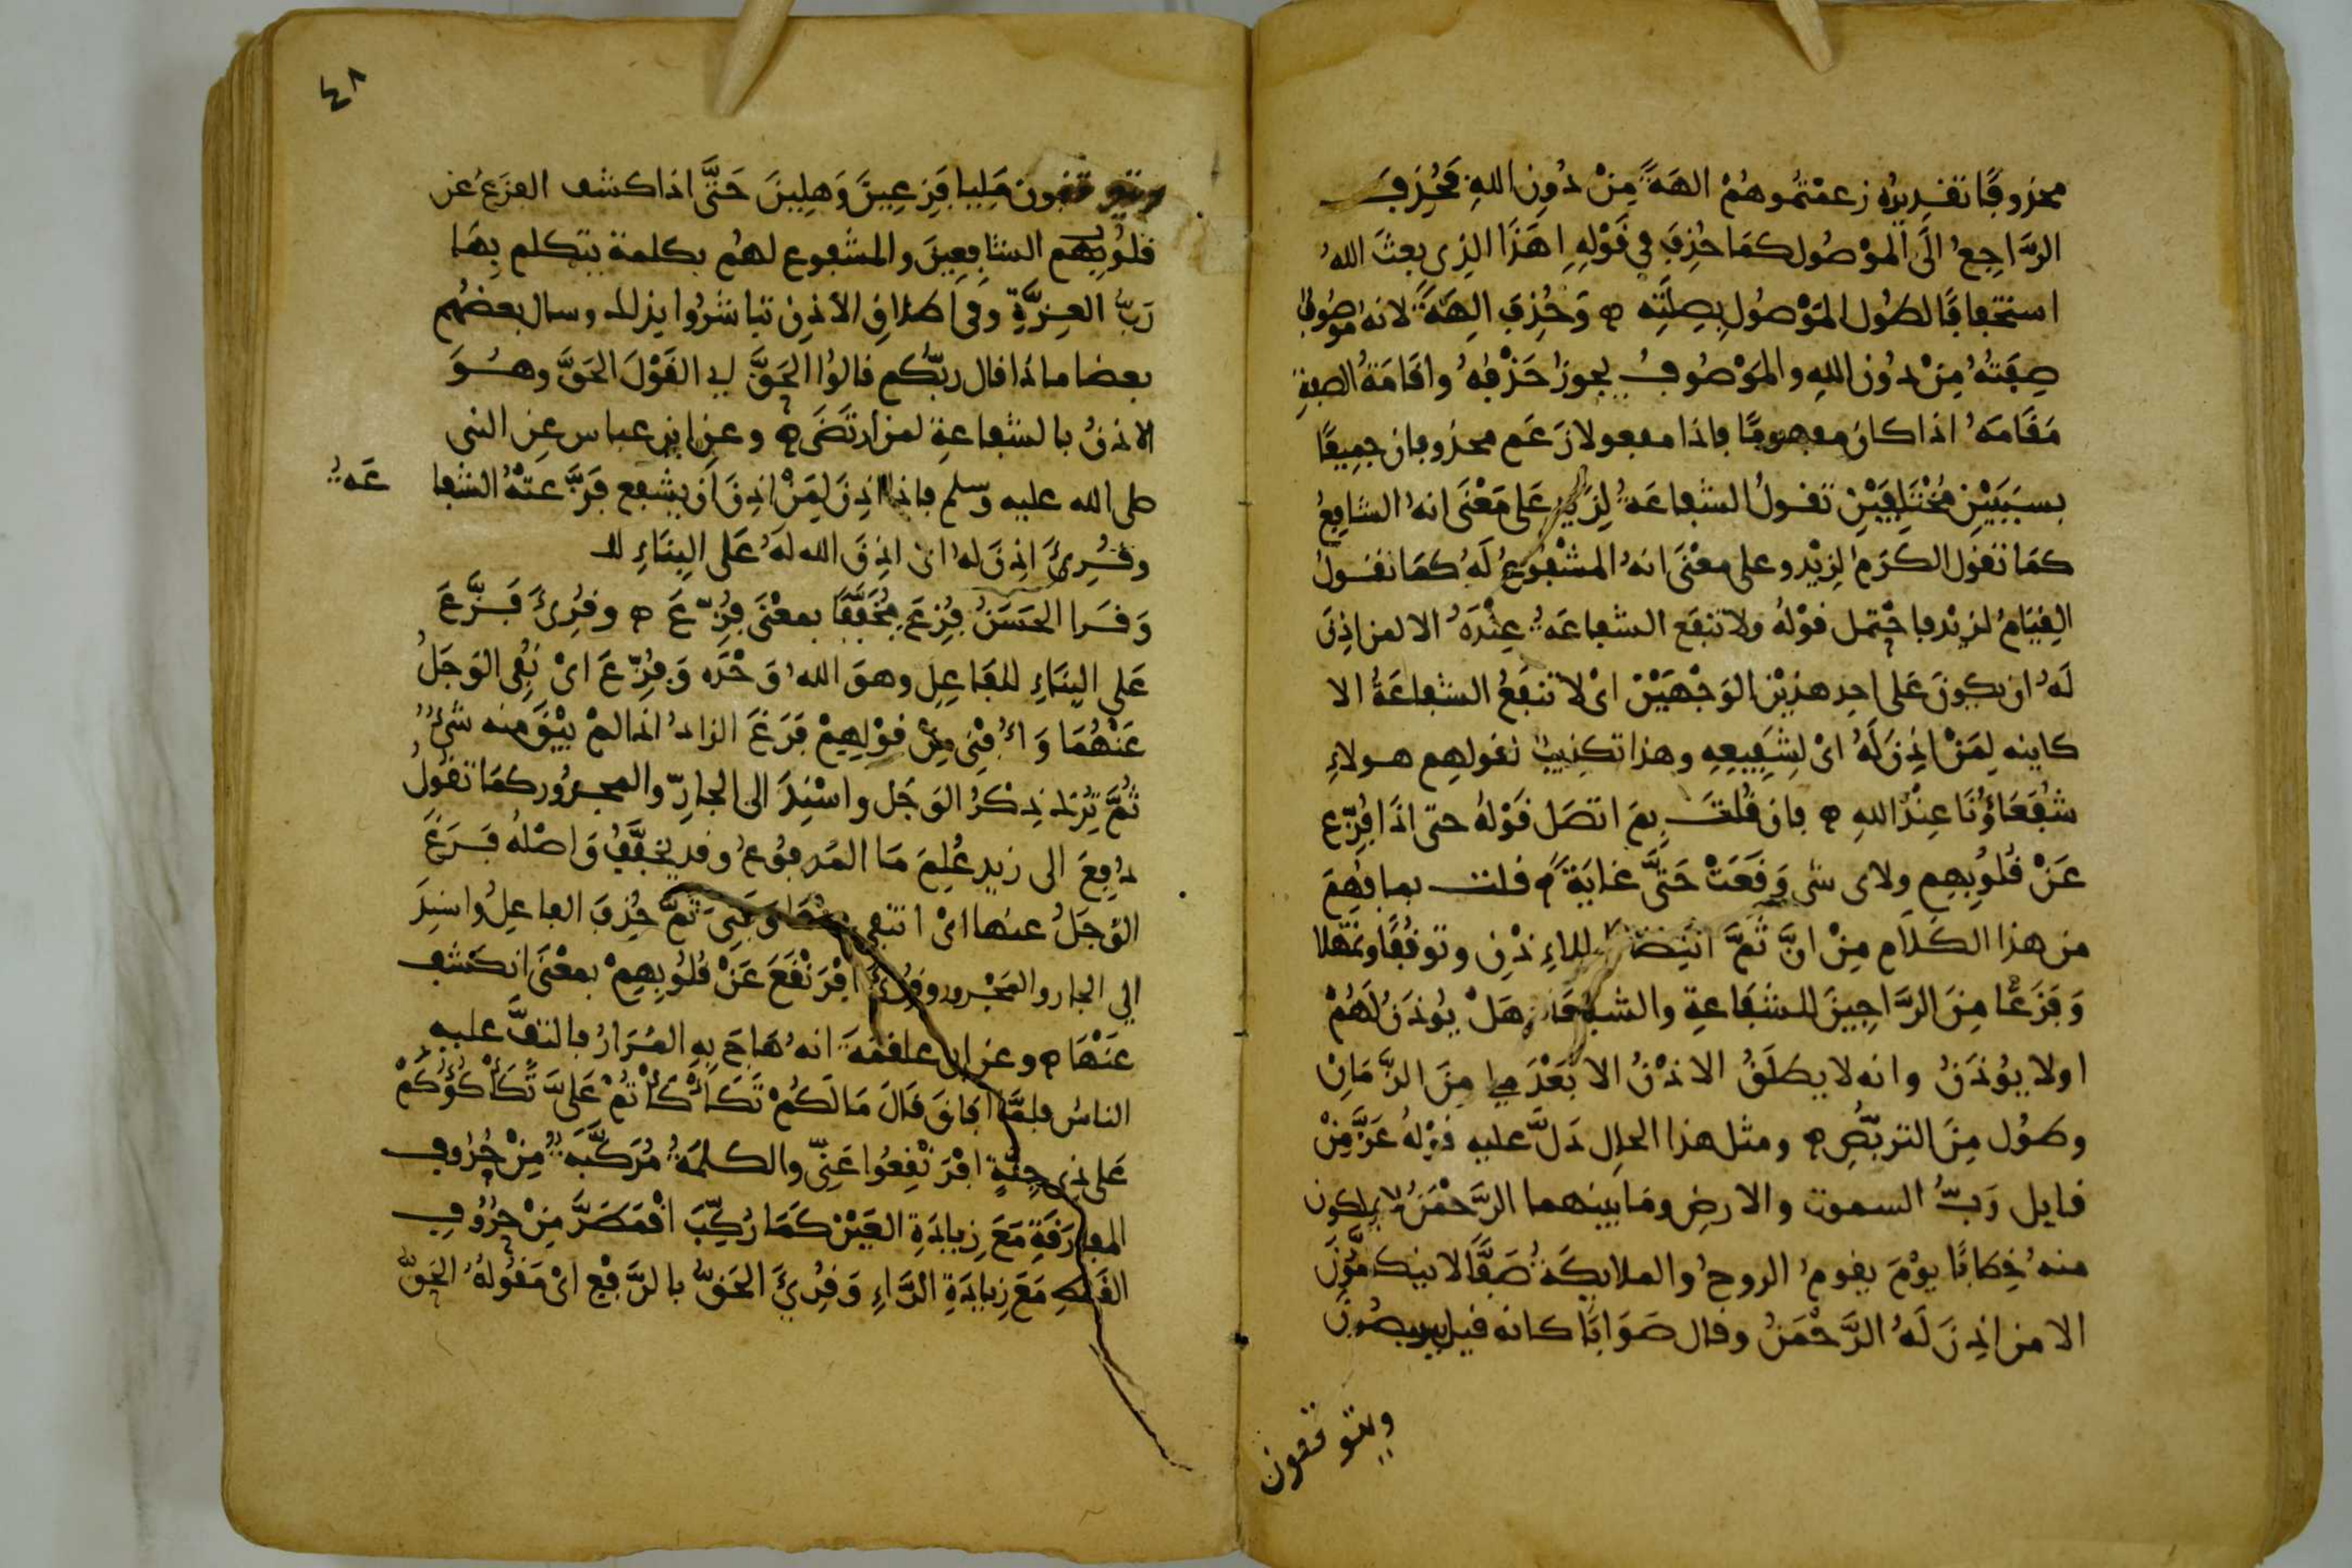 محذوفا تقديره زعمتموهم الهة من دون الله فحذف
الراجع الى الموصول كما حذف في قوله اهذا الذي بعث الله
استخفافا لطول الموصول بصلته ه وحذف الهة لانه موصوف
صفته من دون الله والموصوف يجوز حذفه واقامة الصفة
مقامه اذا كان مفهوما فاذا مفعولا زعم محذوفان جميعا
بسببين مختلفين تقول الشفاعة لزيد على معنى انه الشافع
كما تقول الكرم لزيد وعلى معنى انه المشفوع له كما تقول
القيام لزيد فاحتمل قوله ولا تنفع الشفاعة عنده الا لمن اذن
له ان يكون على احد هذين الوجهين اي لا تنفع الشفاعة الا
كاينه لمن اذن له اي لشفيعه وهذا تكذيب لقولهم هولاء
شفعاؤنا عند الله ه فان قلت بم اتصل قوله حتى اذا فزع
عن قلوبهم ولاي شي وقعت حتى غاية ه قلت بما فهم
من هذا الكلام من ان ثم انتظارا للاذن وتوقفا وتمهلا
وفزعا من الراجين للشفاعة والشفعا هل يوذن لهم
اولا يوذن وانه لا يطلق الاذن الا بعد ملي من الزمان
وطول من التربص ه ومثل هذا الحال دل عليه قوله عز من
قايل رب السموت والارض وما بينهما الرحمن لا يملكون
منه خطابا يوم يقوم الروح والملايكة صفا لا يتكلمون
الا من اذن له الرحمن وقال صوابا كانه قيل يتربصون
ويتوقفون
٤٨
ويتوقفون مليا فزعين وهلين حتى اذا كشف الفزع عن
قلوبهم الشافعين والمشفوع لهم بكلمة يتكلم بها
رب العزة وفي اطلاق الاذن تباشروا بذلك وسال بعضهم
بعضا ماذا قال ربكم قالوا الحق اي القول الحق وهو
الاذن بالشفاعة لمن ارتضى ه وعن ابن عباس عن النبي
صلى الله عليه وسلم فاذا اذن لمن اذن ان يشفع فزعته الشفا
عة
وقرئ اذن له اي اذن الله له على البناء لل
وقرا الحسن فزع مخففا بمعنى فزع ه وقرئ فزع
على البناء للفاعل وهو الله وحده وفزع اي نفي الوجل
عنهما وافني من قولهم فرغ الزاد اذا لم يبق منه شئ
ثم ترك ذكر الوجل واسند الى الجار والمجرور كما تقول
دفع الى زيد علم ما المدفوع وقد يخفف واصله فرغ
الوجل عنها اي انتفى عنها وفني ثم حذف الفاعل واسند
الي الجار والمجرور وقرئ افرنقع عن قلوبهم بمعنى انكشف
عنها ه وعن ابي علقمة انه هاج به المرار فالتف عليه
الناس فلما افاق قال مالكم تكاكاتم علي تكاكؤكم
على ذي جنة افرنقعوا عني والكلمة مركبة من حروف
المفارقة مع زيادة العين كما ركب اقمطر من حروف
القمط مع زيادة الراء وقرئ الحق بالرفع اي مقوله الحق